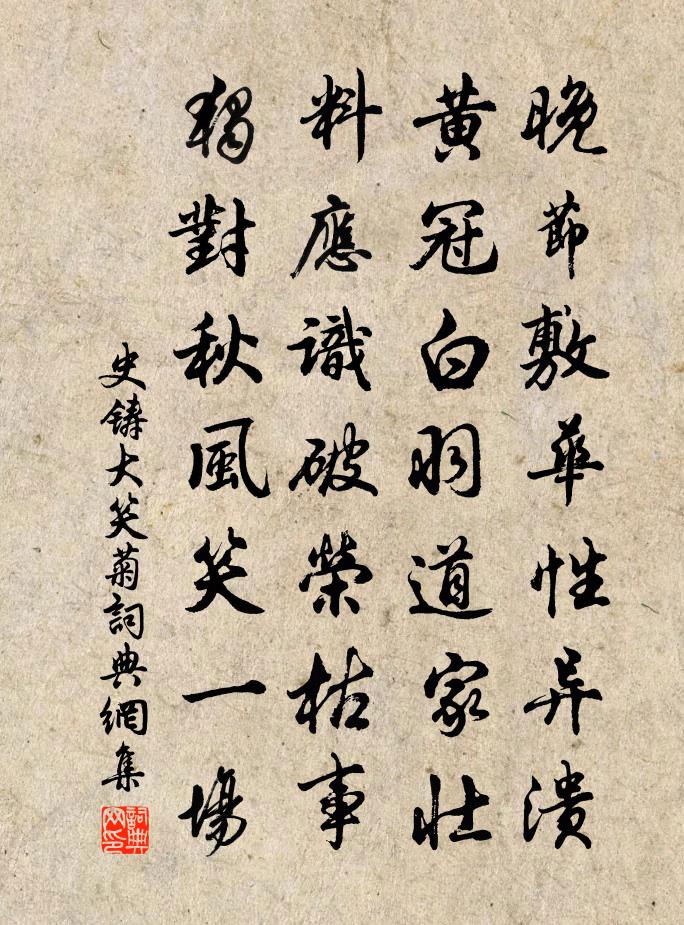 晚節敷華性异潰
黃冠白羽道家壯
料應識破榮枯事
獨對秋風笑一場
史鑄大笑菊詞典網集
詞典網印